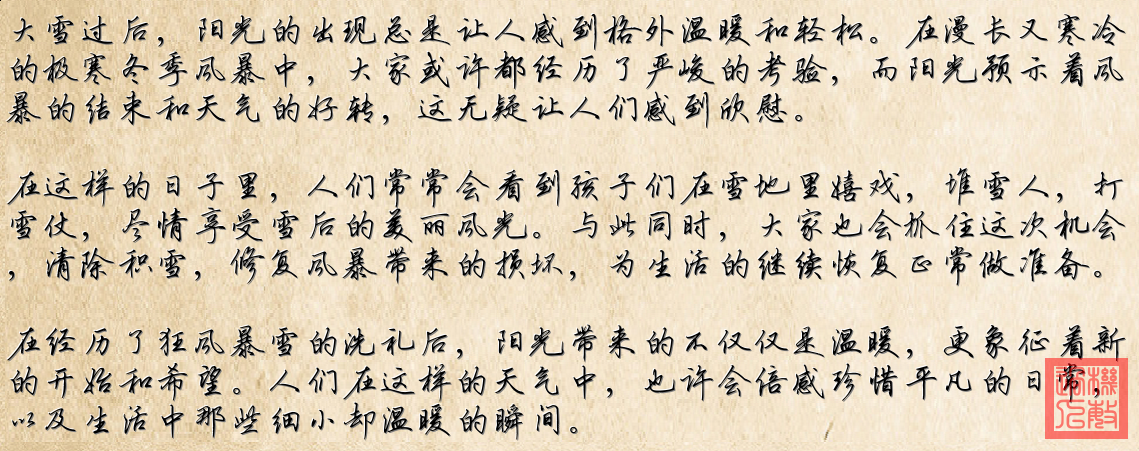 大雪过后，阳光的出现总是让人感到格外温暖和轻松。在漫长又寒冷
的极寒冬季风暴中，大家或许都经历了严峻的考验，而阳光预示着风
暴的结束和天气的好转，这无疑让人们感到欣慰。
在这样的日子里，人们常常会看到孩子们在雪地里嬉戏，堆雪人，打
雪仗，尽情享受雪后的美丽风光。与此同时，大家也会抓住这次机会
，清除积雪，修复风暴带来的损坏，为生活的继续恢复正常做准备。
在经历了狂风暴雪的洗礼后，阳光带来的不仅仅是温暖，更象征着新
的开始和希望。人们在这样的天气中，也许会倍感珍惜平凡的日常，
以及生活中那些细小却温暖的瞬间。